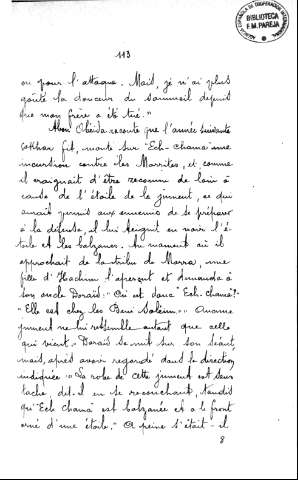 AGENCIA ESPAÑOLA DE COOPERACION INTERNACIONAL
BIBLIOTECA
F.M. PAREJA
113
ou pour l'attaque. Mais, je n'ai plus
goûté la douceur du sommeil depuis
que mon frère a été tué."
Abou Obéida raconte que l'année suivante
fit, monté sur "Ech-chama" une
incursion contre les Morrites, et comme
il craignait d'être reconnu de loin à
cause de l'étoile de la jument, ce qui
aurait permis aux ennemis de se préparer
à la défense, il lui teignit en noir l'é-
toile et les balzanes. Au moment où il
approchait de la tribu de Morra, une
fille d'Hachem l'aperçut et demanda à
son oncle Doraïd: "Où est donc "Ech-chama?"
"Elle est chez les Beni Soleïm" "Aucune
jument ne lui ressemble autant que celle
qui vient." Doraïd se mit sur son séant,
mais, après avoir regardé dans la direction
indiquée "La robe de cette jument est sans
tache, dit-il en se recouchant, tandis
qu'"Ech chama" est balzanée et a le front
orné d'une étoile." A peine s'était-il
8